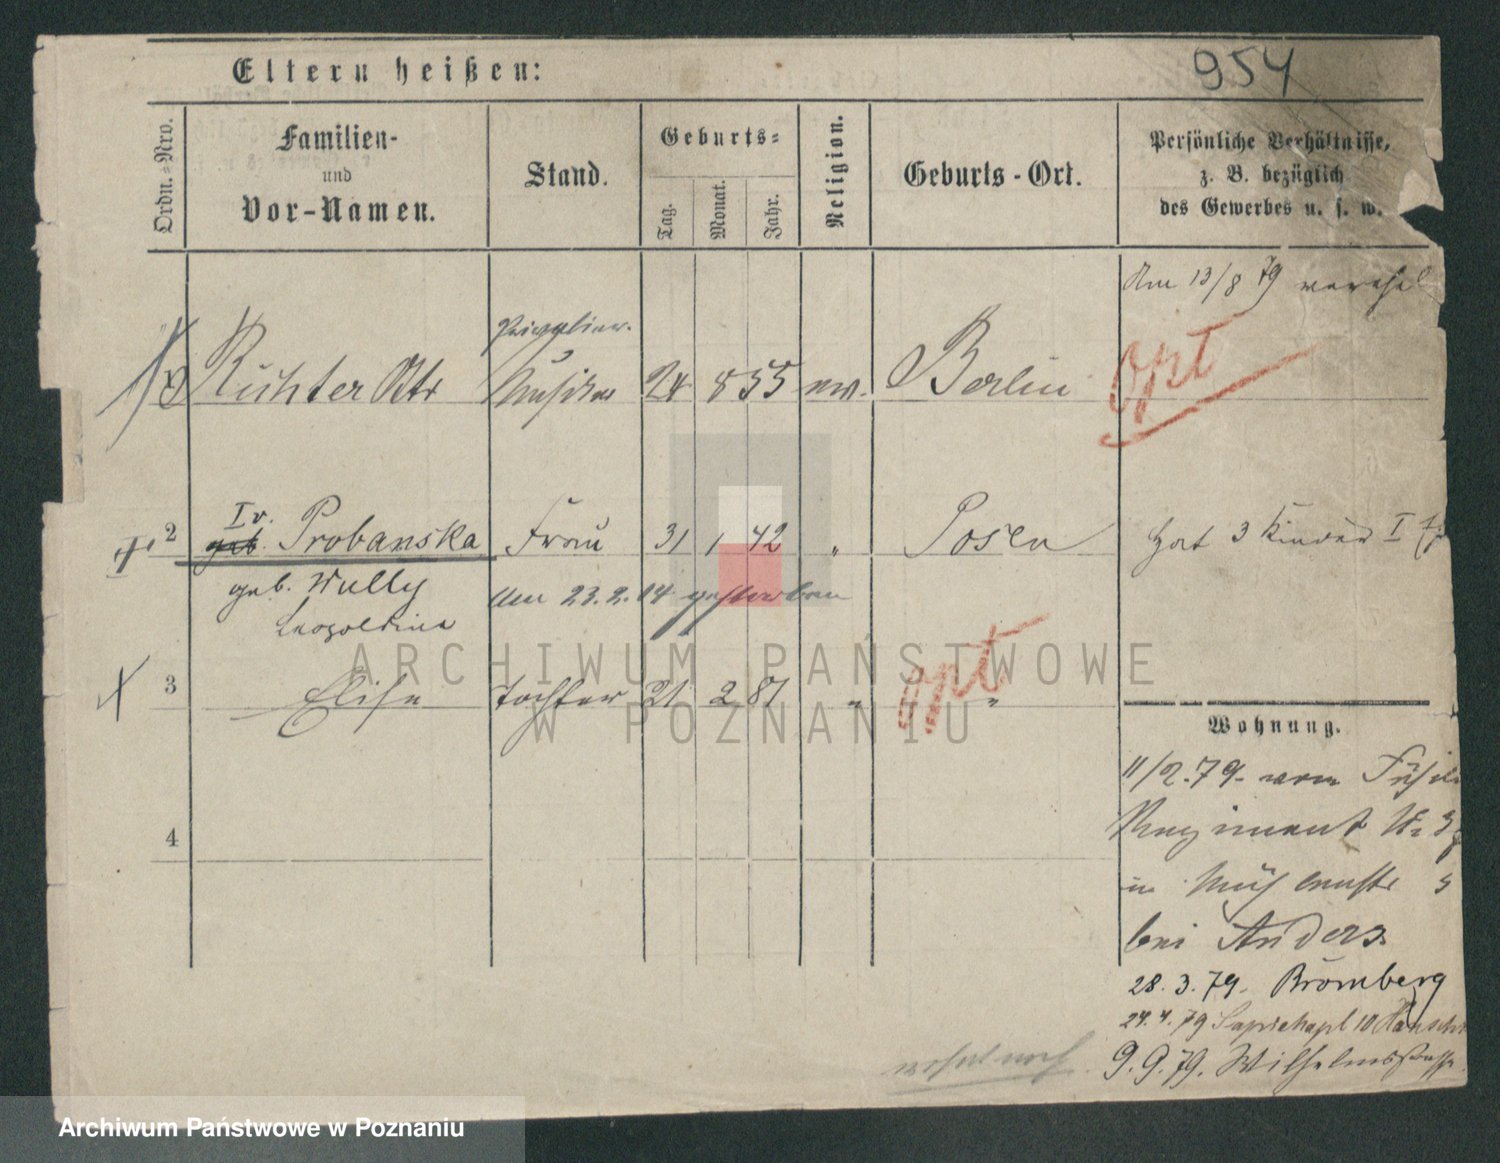 954
Eltern heißen:
Ordn.-Nro.
Familien-
und
Vor-Namen.
Stand.
Geburts-
Tag.
Monat.
Jahr.
Religion.
Geburts-Ort.
Persönliche Verhältnisse,
z. B. bezüglich
des Gewerbes u. s. w.
Am 13/8 79 verehel
Richter Otto Musiker 24 8 55 ev. Berlin
opt
2 Iv. geb. Probanska Frau 31 1 42 " Posen hat 3 Kinder I
geb. Wully
Leopoldine
Am 23.2.14 gestorben
3 Elise Tochter 21 2 81 " "
opt
4
Wohnung.
11/2.79. vom Füsil
Regiment
in
bei Anders
28.3.79. Bromberg
24.4.79 Sapiehapl 10
9.9.79. Wilhelmsstraße
ARCHIWUM PAŃSTWOWE
W POZNANIU
Archiwum Państwowe w Poznaniu